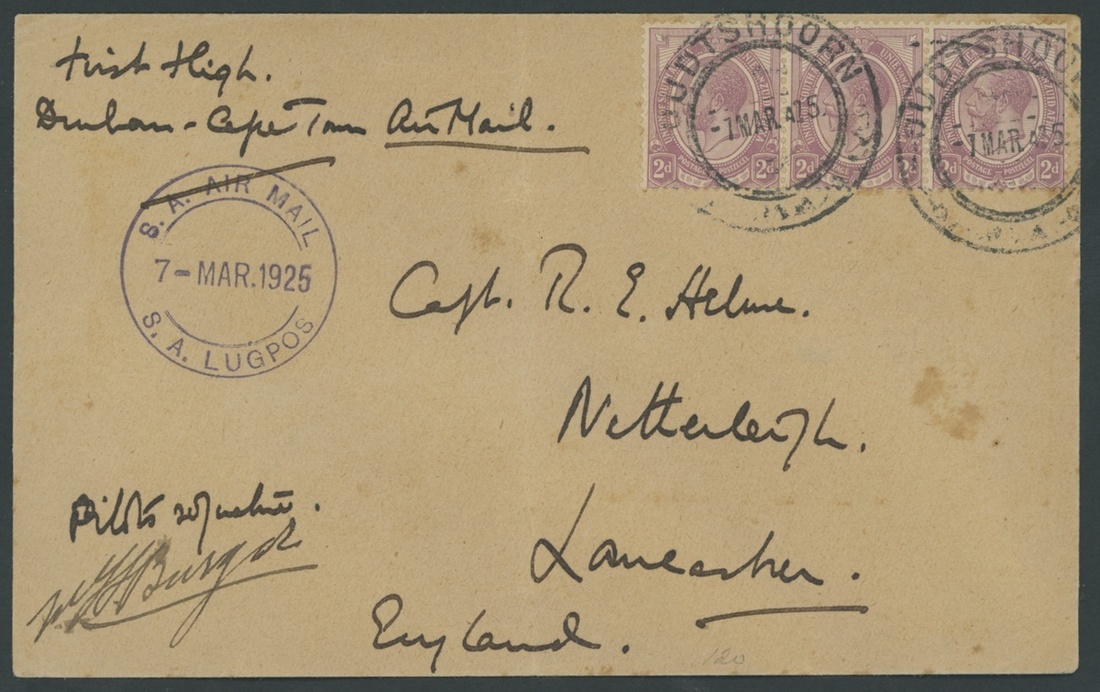 First Flight.
Durban - Cape Town Air Mail.
OUDTSHOORN
-7 MAR 25
OUDTSHOORN
-7 MAR 25
2d POSTAGE 2d
2d POSTAGE 2d
2d POSTAGE 2d
S. A. AIR MAIL
7-MAR.1925
S. A. LUGPOS
Capt. R. E. Helme.
Netherleigh.
Lancaster.
England.
Pilots signature.
120